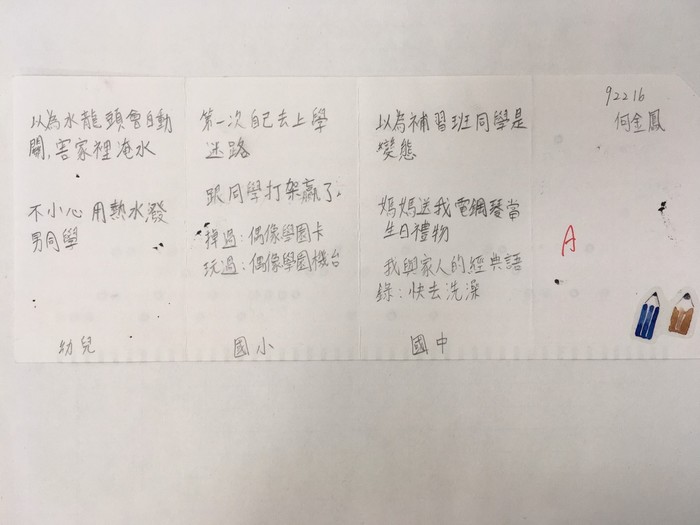 以為水龍頭會自動
關,害家裡淹水
不小心用熱水潑
男同學
幼兒
第一次自己去上學
迷路
跟同學打架贏了。
掉過:偶像學園卡
玩過:偶像學園機台
國小
以為補習班同學是
變態
媽媽送我電鋼琴當
生日禮物
我與家人的經典語
錄:快去洗澡
國中
92216
何金鳳
A